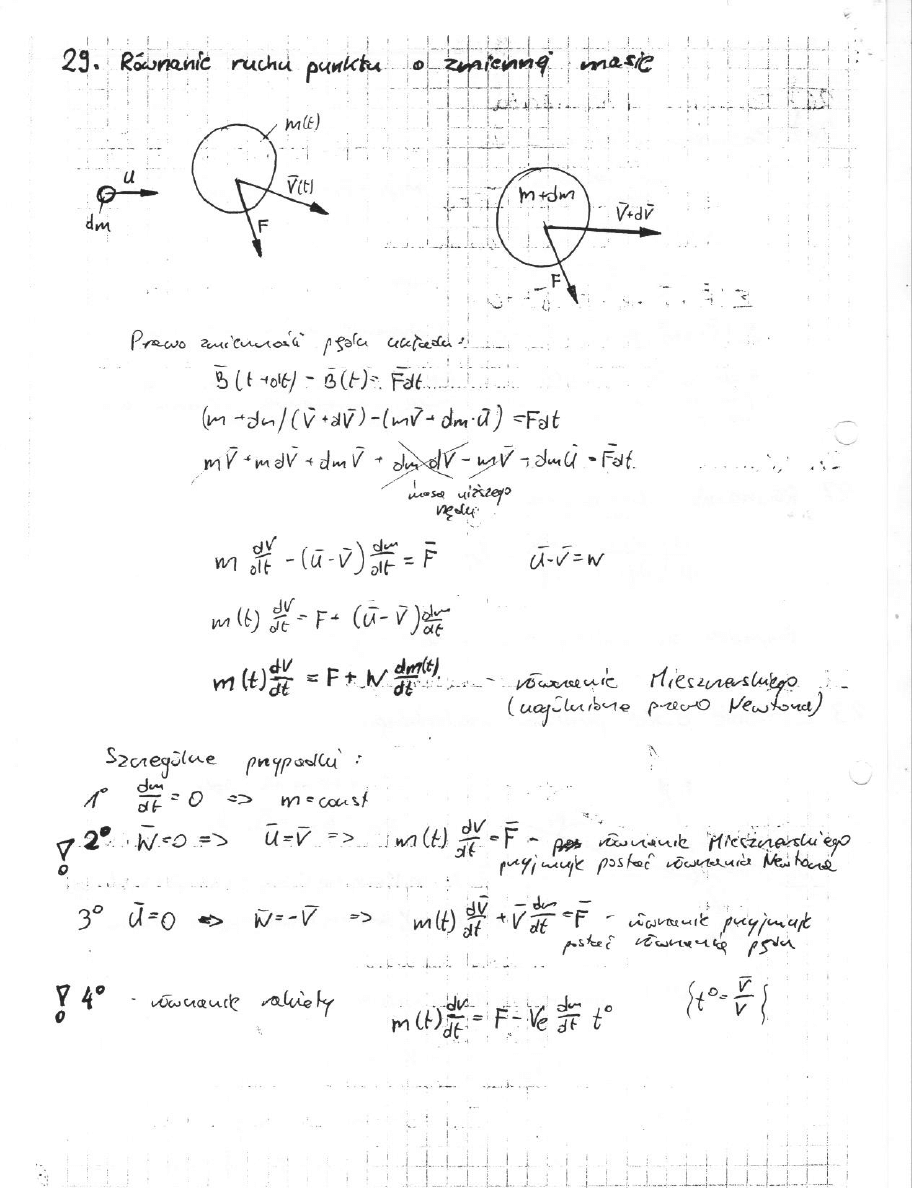 29. Równanie ruchu punktu o zmienną masie
m(t)
u
V̄(t)
dm
F
m+dm
V̄+dV̄
F
Prawo zmienności pędu układu:
B̄(t+dt) - B̄(t) = F̄dt
(m+dm)(V̄+dV̄)-(mV̄+dm·ū) = Fdt
mV̄+mdV̄+dmV̄+dmdV̄-mV̄+dmŪ = F̄dt
niższego
rzędu
m dV/dt - (ū-V̄) dm/dt = F̄ ū-V̄=w
m(t) dV/dt = F+ (ū-V̄) dm/dt
m(t) dV/dt = F + W dm(t)/dt - równanie Mieszczerskiego
(uogólnione prawo Newtona)
Szczególne przypadki:
1° dm/dt = 0 => m=const
! 2° W̄=0 => ū=V̄ => m(t) dV/dt = F̄ - równanie Mieszczerskiego
przyjmuje postać równania Newtona
3° ū=0 => w̄=-V̄ => m(t) dV̄/dt + V̄ dm/dt = F̄ - równanie przyjmuje
postać równania pędu
! 4° - równanie rakiety m(t) dv/dt = F - Ve dm/dt t° {t°= V̄/V}